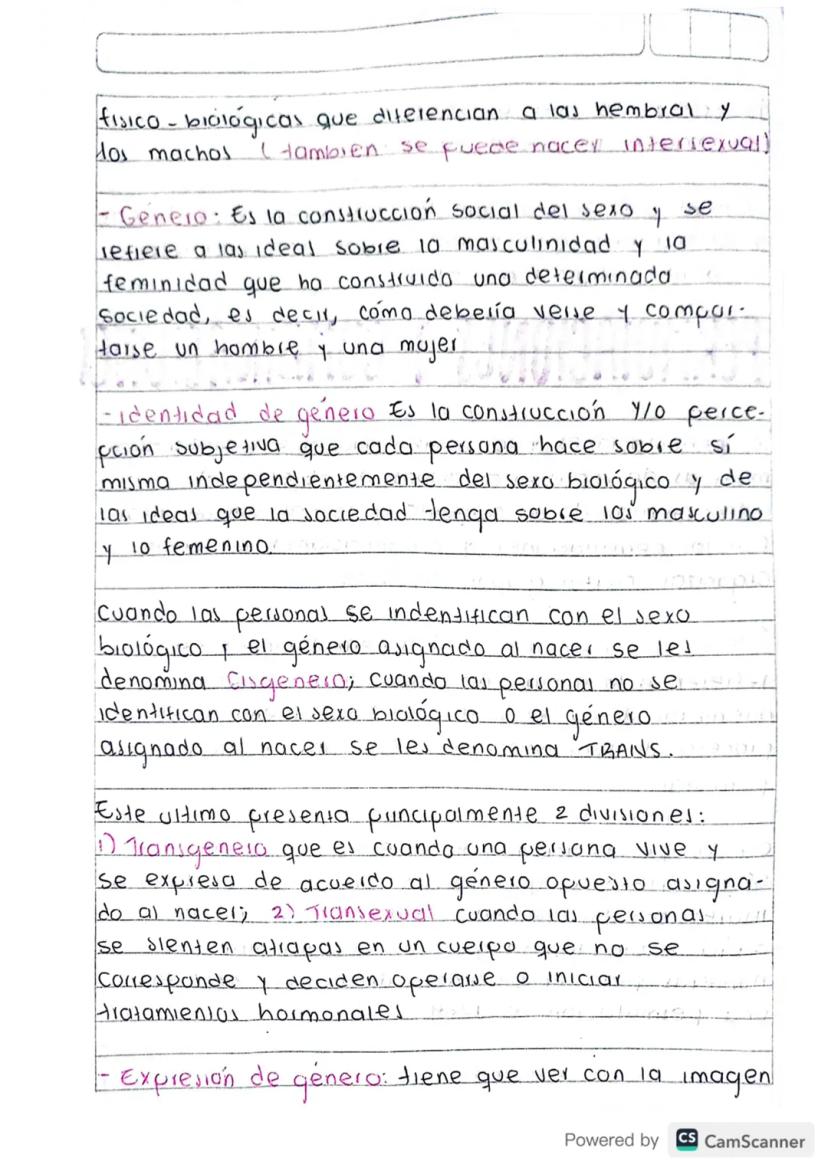 fisico-biológicas que diferencian a las hembras y
los machos (tambien se puede nacer intersexual)
- Género: Es la construcción social del sexo y se
refiere a las ideas sobre la masculinidad y la
feminidad que ha construido una determinada
sociedad, es decir, cómo debería verse y compor-
tarse un hombre y una mujer
- identidad de género Es la construcción y/o perce-
pción subjetiva que cada persona hace sobre sí
misma independientemente del sexo biológico y de
las ideas que la sociedad tenga sobre los masculino
y lo femenino.
Cuando las personas se indentifican con el sexo
biológico y el género asignado al nacer se les
denomina Cisgenero; cuando las personas no se
identifican con el sexo biológico o el género
asignado al nacer se les denomina TRANS.
Este ultimo presenta principalmente 2 divisiones:
1) Transgenero que es cuando una persona vive y
se expresa de acuerdo al género opuesto asigna-
do al nacer; 2) Transexual cuando las personas
se sienten atrapas en un cuerpo que no se
corresponde y deciden operarse o iniciar
tratamientos hormonales
- Expresión de género: tiene que ver con la imagen
Powered by CS CamScanner